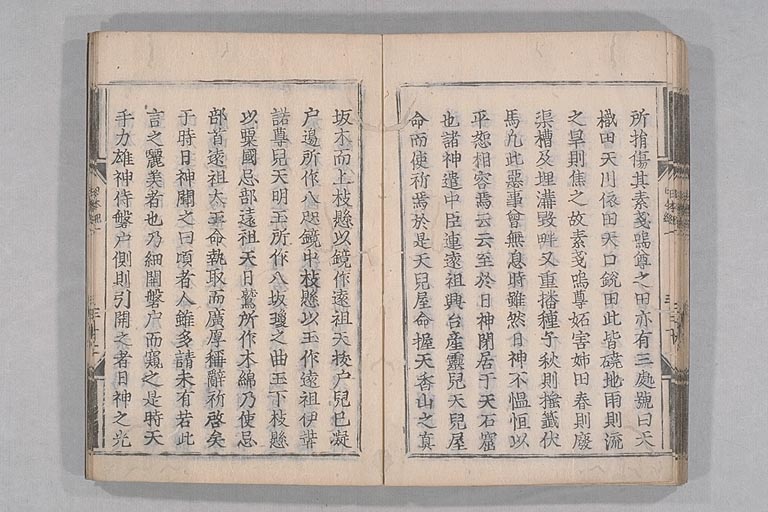 所損傷其素戔嗚尊之田亦有三處號曰天
樴田天川依田天口鋭田此皆磽地雨則流
之旱則焦之故素戔嗚尊妬害姉田春則廢
渠槽及埋溝毀畔又重播種子秋則揷籤伏
馬凡此惡事曾無息時雖然日神不慍恒以
平恕相容焉云云至於日神閉居于天石窟
也諸神遣中臣連遠祖興台産靈兒天兒屋
命而使祈焉於是天兒屋命握天香山之真
坂木而上枝懸以鏡作遠祖天抜户兒巳凝
户邉所作八咫鏡中枝懸以玉作遠祖伊弉
諾尊兒天明玉所作八坂瓊之曲玉下枝懸
以粟國忌部遠祖天日鷲所作木綿乃使忌
部首遠祖太玉命執取而廣厚稱辭祈啓矣
于時日神聞之曰頃者人雖多請未有若此
言之麗美者也乃細開磐户而窺之是時天
手力雄神侍磐户側則引開之者日神之光